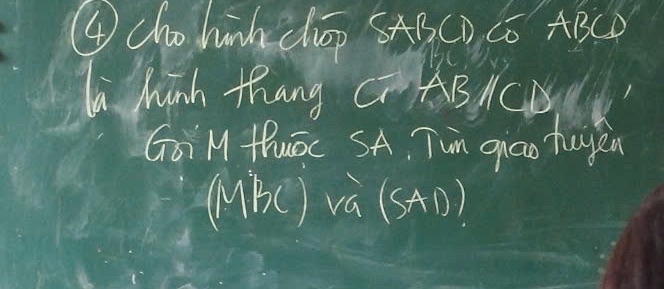 ④ Cho hình chóp SABCD có ABCD
là hình thang có AB//CD,
Gọi M thuộc SA. Tìm giao tuyến
(MBC) và (SAD)?